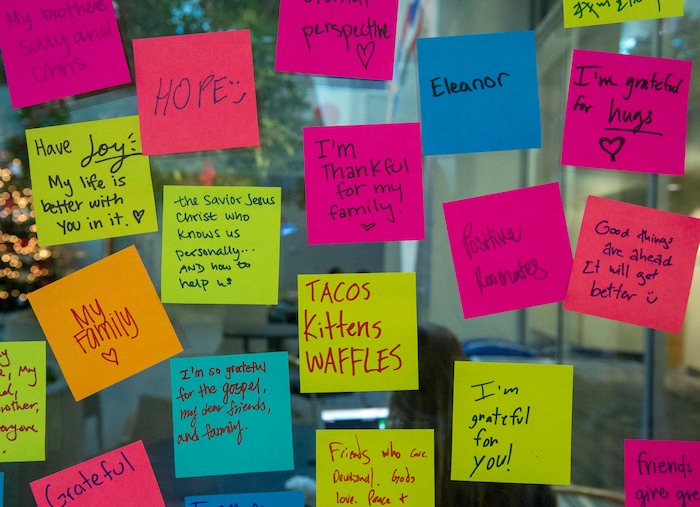 My brothers
Silly and
Chris
HOPE
perspective
Eleanor
I'm grateful
for hugs
Have Joy
My life is
better with
You in it.
the Savior Jesus
Christ who
knows us
personally...
AND how to
help us
I'm
Thankful
for my
family.
Positive
Roomates
Good things
are ahead
It will get
better
My
Family
TACOS
Kittens
WAFFLES
I'm so grateful
for the gospel,
my dear friends,
and family.
I'm
grateful
for
you!
, My
Grateful
Friends who care.
Devotional. Gods
love. Peace +
friends